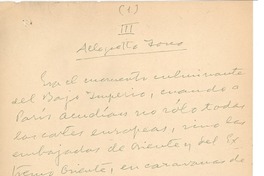 (1)
III
Allegretto
Era el momento culminante
del Bajo Imperio, cuando a
París acudían no sólo todas
las cortes europeas, sino las
embajadas de Oriente y del Ex
tremo Oriente, en caravanas de